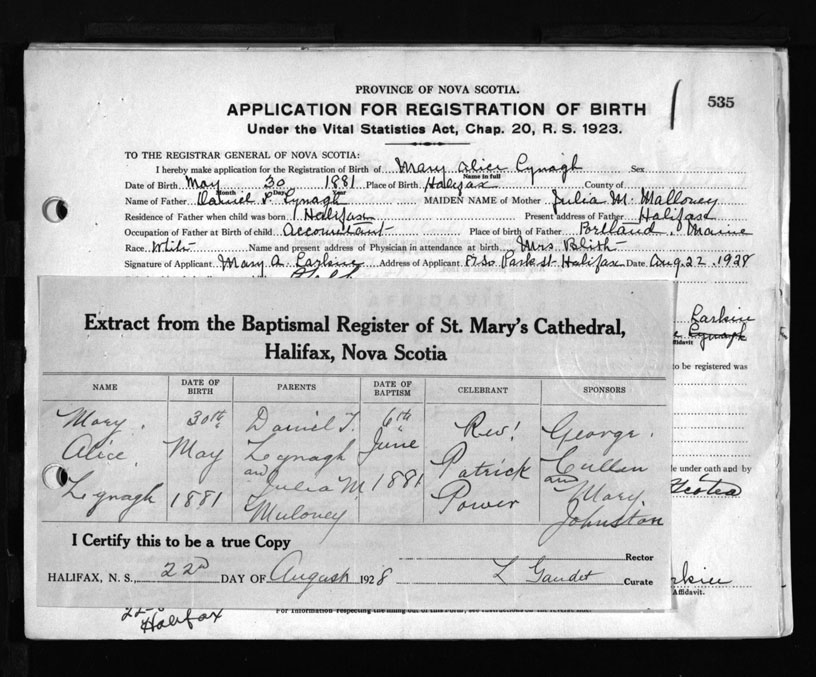 PROVINCE OF NOVA SCOTIA.
535
APPLICATION FOR REGISTRATION OF BIRTH
Under the Vital Statistics Act, Chap. 20, R. S. 1923.
TO THE REGISTRAR GENERAL OF NOVA SCOTIA:
I hereby make application for the Registration of Birth of Mary Alice Lynagh Sex
Name in full
Date of Birth May 30 1881 Place of Birth Halifax County of
Month Day Year
Name of Father Daniel Lynagh MAIDEN NAME of Mother Julia M. Malloney
Residence of Father when child was born Halifax Present address of Father Halifax
Occupation of Father at Birth of child accountant Place of birth of Father Portland, Maine
Race White Name and present address of Physician in attendance at birth Mrs Blish
Signature of Applicant Mary A Larkin Address of Applicant Park st Halifax Date Aug. 22. 1928
Larkin
Lynagh
ffidavit
to be registered was
Extract from the Baptismal Register of St. Mary's Cathedral,
Halifax, Nova Scotia
NAME DATE OF BIRTH PARENTS DATE OF BAPTISM CELEBRANT SPONSORS
Mary. 30th Daniel T. 6th Rev! George.
Alice May Lynagh June Patrick Cullen
Lynagh 1881 and Julia M 1881 Power and Mary
Muloney Johnston
le under oath and by
Scotia
I Certify this to be a true Copy
Rector
HALIFAX, N. S. 22nd DAY OF August 1928 L Gaudet Curate
rkin
Affidavit.
Halifax
For Information respecting the filling out of this Form, see instructions on the reverse side.